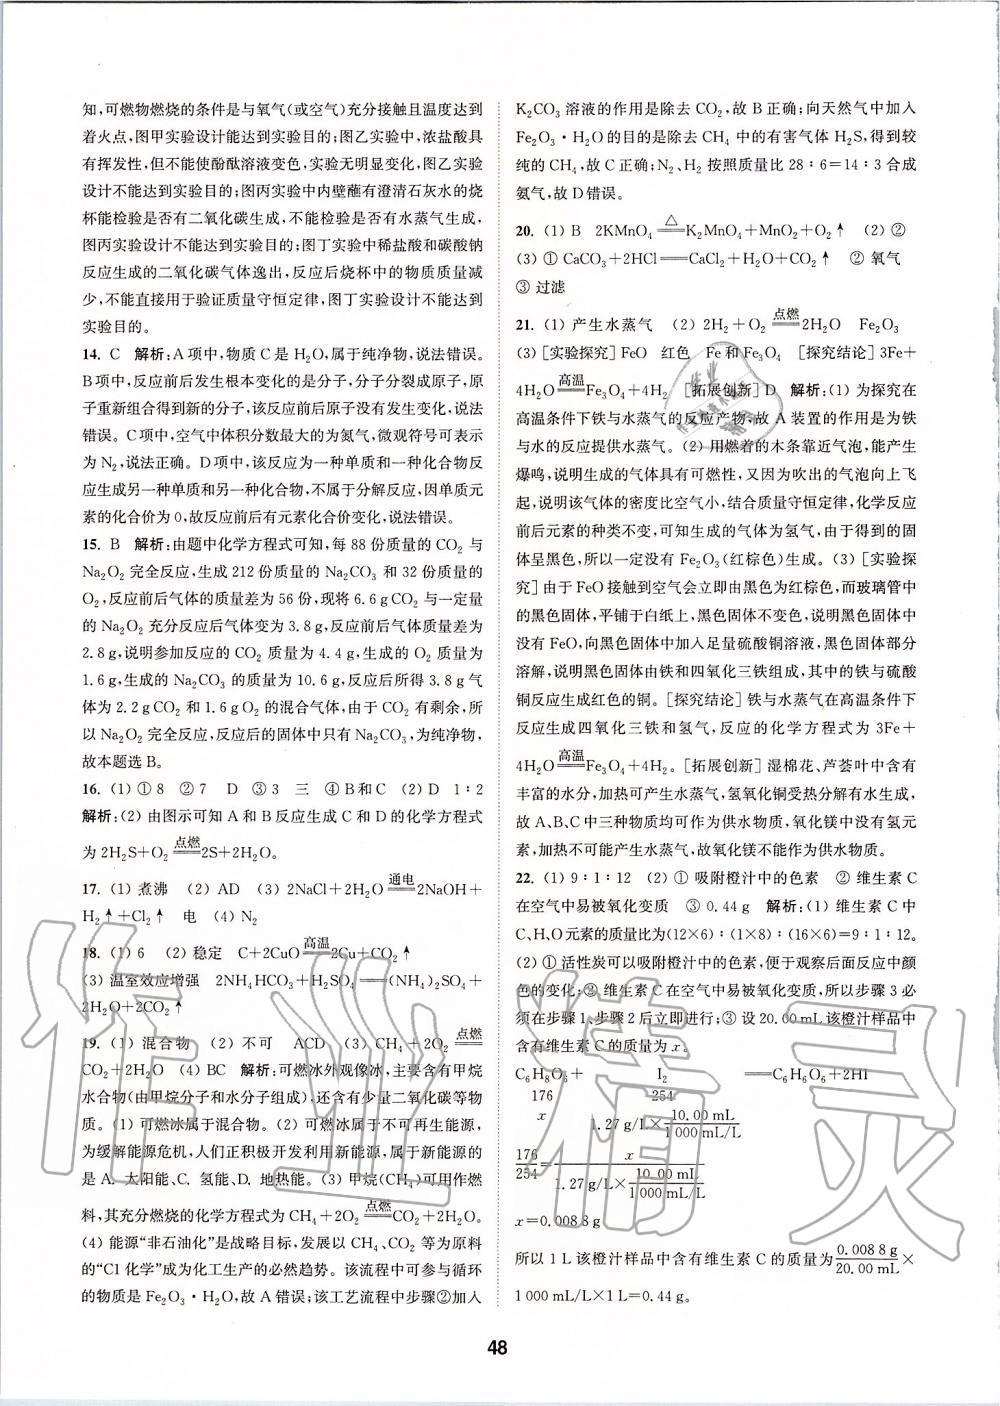 知,可燃物燃烧的条件是与氧气(或空气)充分接触且温度达到
着火点,图甲实验设计能达到实验目的;图乙实验中,浓盐酸具
有挥发性,但不能使酚酞溶液变色,实验无明显变化,图乙实验
设计不能达到实验目的;图丙实验中内壁蘸有澄清石灰水的烧
杯能检验是否有二氧化碳生成,不能检验是否有水蒸气生成,
图丙实验设计不能达到实验目的;图丁实验中稀盐酸和碳酸钠
反应生成的二氧化碳气体逸出,反应后烧杯中的物质质量减
少,不能直接用于验证质量守恒定律,图丁实验设计不能达到
实验目的。
14. C 解析:A项中,物质C是H₂O,属于纯净物,说法错误。
B项中,反应前后发生根本变化的是分子,分子分裂成原子,原
子重新组合得到新的分子,该反应前后原子没有发生变化,说法
错误。C项中,空气中体积分数最大的为氮气,微观符号可表示
为N₂,说法正确。D项中,该反应为一种单质和一种化合物反
应生成另一种单质和另一种化合物,不属于分解反应,因单质元
素的化合价为0,故反应前后有元素化合价变化,说法错误。
15. B 解析:由题中化学方程式可知,每88份质量的CO₂与
Na₂O₂完全反应,生成212份质量的Na₂CO₃和32份质量的
O₂,反应前后气体的质量差为56份,现将6.6 g CO₂与一定量
的Na₂O₂充分反应后气体变为3.8 g,反应前后气体质量差为
2.8 g,说明参加反应的CO₂质量为4.4 g,生成的O₂质量为
1.6 g,生成的Na₂CO₃的质量为10.6 g,反应后所得3.8 g气
体为2.2 g CO₂和1.6 g O₂的混合气体,由于CO₂有剩余,所
以Na₂O₂完全反应,反应后的固体中只有Na₂CO₃,为纯净物,
故本题选B。
16. (1) ①8 ②7 D ③3 三 ④B和C (2) D 1∶2
解析:(2) 由图示可知A和B反应生成C和D的化学方程式
为2H₂S+O₂ 点燃═══ 2S+2H₂O。
17. (1) 煮沸 (2) AD (3) 2NaCl+2H₂O 通电═══ 2NaOH+
H₂↑+Cl₂↑ 电 (4) N₂
18. (1) 6 (2) 稳定 C+2CuO 高温═══ 2Cu+CO₂↑
(3) 温室效应增强 2NH₄HCO₃+H₂SO₄═══(NH₄)₂SO₄+
2H₂O+2CO₂↑
19. (1) 混合物 (2) 不可 ACD (3) CH₄+2O₂ 点燃═══
CO₂+2H₂O (4) BC 解析:可燃冰外观像冰,主要含有甲烷
水合物(由甲烷分子和水分子组成),还含有少量二氧化碳等物
质。(1) 可燃冰属于混合物。(2) 可燃冰属于不可再生能源,
为缓解能源危机,人们正积极开发利用新能源,属于新能源的
是A. 太阳能、C. 氢能、D. 地热能。(3) 甲烷(CH₄)可用作燃
料,其充分燃烧的化学方程式为CH₄+2O₂ 点燃═══ CO₂+2H₂O。
(4) 能源“非石油化”是战略目标,发展以CH₄、CO₂等为原料
的“C1化学”成为化工生产的必然趋势。该流程中可参与循环
的物质是Fe₂O₃·H₂O,故A错误;该工艺流程中步骤②加入
K₂CO₃溶液的作用是除去CO₂,故B正确;向天然气中加入
Fe₂O₃·H₂O的目的是除去CH₄中的有害气体H₂S,得到较
纯的CH₄,故C正确;N₂、H₂按照质量比28∶6=14∶3合成
氨气,故D错误。
20. (1) B 2KMnO₄ △═══ K₂MnO₄+MnO₂+O₂↑ (2) ②
(3) ① CaCO₃+2HCl═══CaCl₂+H₂O+CO₂↑ ② 氧气
③ 过滤
21. (1) 产生水蒸气 (2) 2H₂+O₂ 点燃═══ 2H₂O Fe₂O₃
(3) [实验探究] FeO 红色 Fe和Fe₃O₄ [探究结论] 3Fe+
4H₂O 高温═══ Fe₃O₄+4H₂ [拓展创新] D 解析:(1) 为探究在
高温条件下铁与水蒸气的反应产物,故A装置的作用是为铁
与水的反应提供水蒸气。(2) 用燃着的木条靠近气泡,能产生
爆鸣,说明生成的气体具有可燃性,又因为吹出的气泡向上飞
起,说明该气体的密度比空气小,结合质量守恒定律,化学反应
前后元素的种类不变,可知生成的气体为氢气,由于得到的固
体呈黑色,所以一定没有Fe₂O₃(红棕色)生成。(3) [实验探
究] 由于FeO接触到空气会立即由黑色为红棕色,而玻璃管中
的黑色固体,平铺于白纸上,黑色固体不变色,说明黑色固体中
没有FeO,向黑色固体中加入足量硫酸铜溶液,黑色固体部分
溶解,说明黑色固体由铁和四氧化三铁组成,其中的铁与硫酸
铜反应生成红色的铜。[探究结论] 铁与水蒸气在高温条件下
反应生成四氧化三铁和氢气,反应的化学方程式为3Fe+
4H₂O 高温═══ Fe₃O₄+4H₂。[拓展创新] 湿棉花、芦荟叶中含有
丰富的水分,加热可产生水蒸气,氢氧化铜受热分解有水生成,
故A、B、C中三种物质均可作为供水物质,氧化镁中没有氢元
素,加热不可能产生水蒸气,故氧化镁不能作为供水物质。
22. (1) 9∶1∶12 (2) ① 吸附橙汁中的色素 ② 维生素C
在空气中易被氧化变质 ③ 0.44 g 解析:(1) 维生素C中
C、H、O元素的质量比为(12×6)∶(1×8)∶(16×6)=9∶1∶12。
(2) ① 活性炭可以吸附橙汁中的色素,便于观察后面反应中颜
色的变化;② 维生素C在空气中易被氧化变质,所以步骤3必
须在步骤1、步骤2后立即进行;③ 设20.00 mL该橙汁样品中
含有维生素C的质量为x。
C₆H₈O₆+ I₂ ═══C₆H₆O₆+2HI
176 254
x 1.27 g/L×10.00 mL/1 000 mL/L
176/254=x/(1.27 g/L×10.00 mL/1 000 mL/L)
x=0.008 8 g
所以1 L该橙汁样品中含有维生素C的质量为0.008 8 g/20.00 mL×
1 000 mL/L×1 L=0.44 g。
48
作业精灵